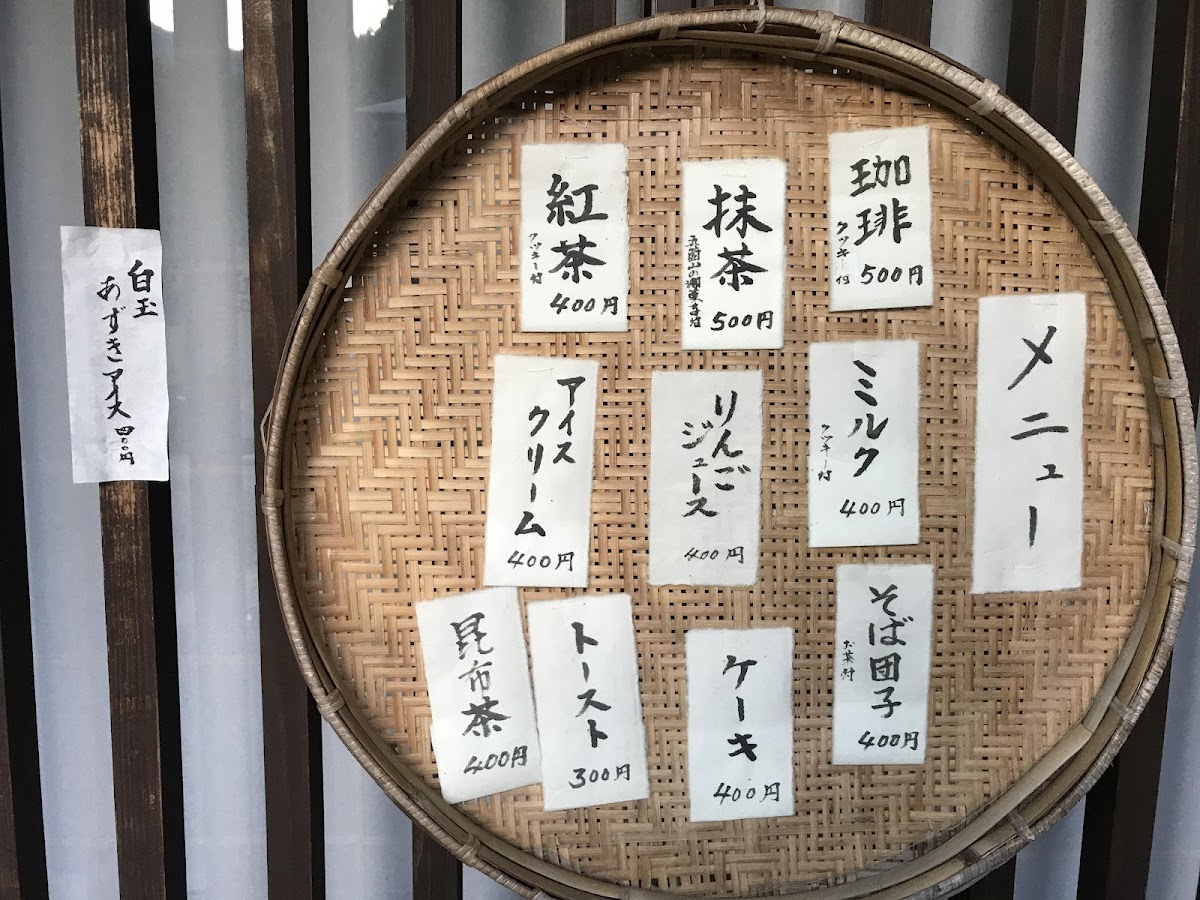 メニュー
珈琲
クッキー付
500円
抹茶
500円
紅茶
クッキー付
400円
ミルク
クッキー付
400円
りんご
ジュース
400円
アイス
クリーム
400円
そば団子
お茶付
400円
ケーキ
400円
トースト
300円
昆布茶
400円
白玉
あずきアイス四〇〇円